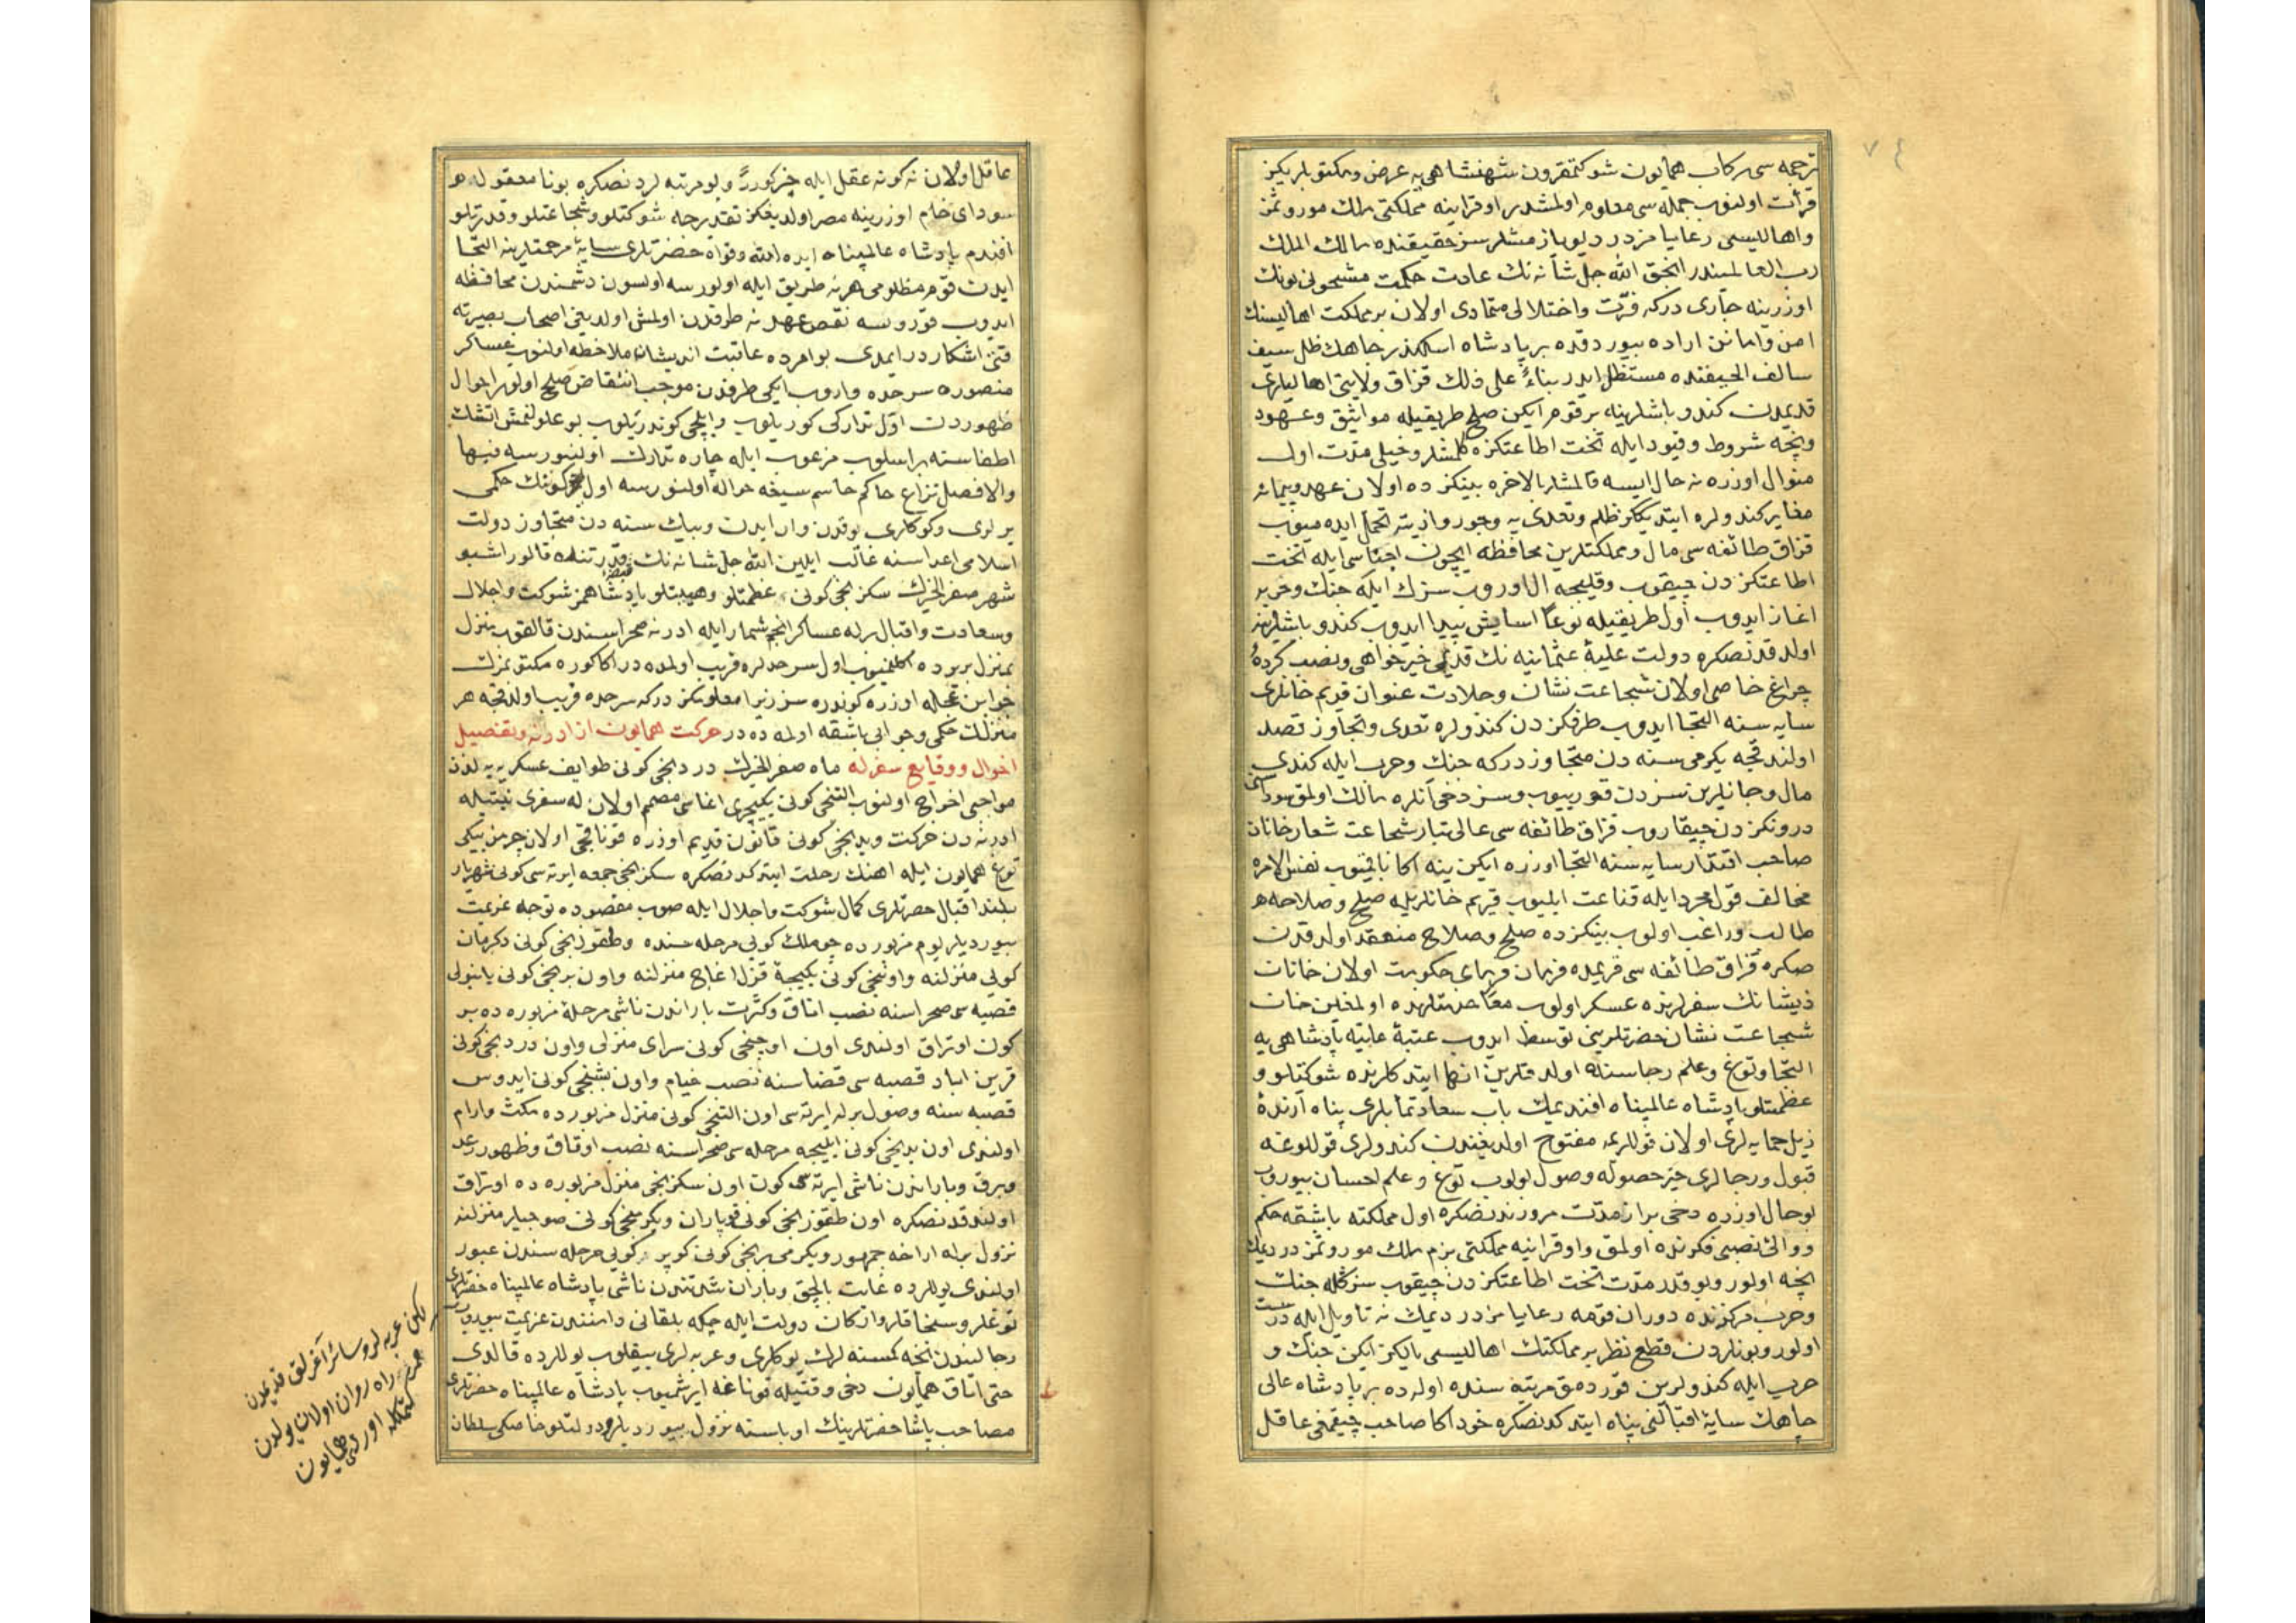 ٧٤
ترجمه سی رکاب همایون شوکتمقرون شهنشاهی یه عرض و مکتوبلریکز
قرأت اولنوب جمله سی معلوم اولمشدر اوقراینه مملکتی ملك موروثمز
واهالیسی رعایامزدر دیو یازمشلرسز حقیقتده مالك الملك
رب العالمیندر انجق الله جل شأنه نك عادت حکمت مشحونی بونك
اوزرینه جاری درکه فترت واختلالی متمادی اولان بر مملکت اهالیسنك
امن وامانن اراده بیوردقده بر پادشاه اسکندر جاهك ظل سیف
سالف الحیفنده مستظل ایدر بناءً علی ذلك قزاق ولایتی اهالیلری
قدیمدن کندو باشلرینه بر قوم ایکن صلح طریقیله مواثیق وعهود
ونچه شروط وقیود ایله تحت اطاعتکزه کلمشلر وخیلی مدت اول
منوال اوزره نه حال ایسه قالمشلر بالاخره بینکزده اولان عهد وپیمانه
مغایر کندولره ایتدیککز ظلم وتعدی یه وجور واذیته تحمل ایده میوب
قزاق طائفه سی مال ومملکتلرین محافظه ایچون اجتاسی ایله تحت
اطاعتکزدن چیقوب وقلیجه ال اوروب سزك ایله جنك وحربه
اغاز ایدوب اول طریقیله نوعاً اسایش پیدا ایدوب کندو باشلرینه
اولدقدنصکره دولت علیهٔ عثمانیه نك قدیمی خیرخواهی ونصب کردهٔ
چراغ خاصی اولان شجاعت نشان وجلادت عنوان قدیم خانلری
سایه سنه التجا ایدوب طرفکزدن کندولره تعدی وتجاوز قصد
اولندقجه یکرمی سنه دن متجاوزدرکه جنك وحرب ایله کندی
مال وجانلرین سزدن قورییوب وسز دخی آنلره مالك اولمق سوداسن
درونکزدن چیقاروب قزاق طائفه سی عالی تبار شجاعت شعار خانان
صاحب اقتدار سایه سنه التجا اوزره ایکن ینه اکا نالنیوب نفس الامره
مخالف قول مجرد ایله قناعت ایلمیوب قریم خانلریله صلح وصلاحه
طالب وراغب اولوب بینکزده صلح وصلاح منعقد اولدقدن
صکره قزاق طائفه سی قریمده فرمان فرمای حکومت اولان خانان
ذیشانك سفرلرنده عسکر اولوب معاهدتلرنده اولمغین خان
شجاعت نشان حضرتلرینی توسط ایدوب عتبهٔ علیهٔ پادشاهی یه
التجا وتوغ وعلم رجاسنده اولدقلرین انها ایتدکلرنده شوکتلو و
عظمتلو پادشاه عالمپناه افندیمك باب سعادتمآبلری پناه آرندهٔ
ذیل حمایه لری اولان قوللرینه مفتوح اولدیغندن کندولری قوللوغه
قبول ورجالری حیز حصوله وصول بولوب توغ وعلم احسان بیوروب
بو حال اوزره دخی براز مدت مرورندنصکره اول مملکته باشقه حکم
ووالی نصبی فکرنده اولمق واوقراینه مملکتی بزم ملك موروثمزدر دیمك
نچه اولور وبو قدر مدت تحت اطاعتکزدن چیقوب سزکله جنك
وحرب مرکزنده دوران قومه رعایامزدر دیمك نه تأویل ایله درست
اولور وبونلردن قطع نظر بر مملکتك اهالیسی یالکز ایکن جنك و
حرب ایله کندولرین قورومق مرتبه سنده اوله ده بر پادشاه عالی
جاهك سایهٔ اقبالنی پناه ایتدکدنصکره خود اکا صاحب چیقمغی عاقل
عاقل اولان نه کونه عقل ایله جزکورر وبو مرتبه لردنصکره بونا معقوله
سودای خام اوزرینه مصر اولدیغکز تقدیرجه شوکتلو وشجاعتلو وقدرتلو
افندم پادشاه عالمپناه ایده الله وقواه حضرتلری سایهٔ مرحمتلرینه التجا
ایدن قوم مظلومی هر نه طریق ایله اولورسه اولسون دشمندن محافظه
ایدوب قورروسه نقض عهد نه طرفدن اولمش اولدیغی اصحاب بصیرته
قتی اشکاردر ایمدی بو امرده عاقبت اندیشانه ملاحظه اولنوب عساکر
منصوره سرحده واروب ایکی طرفدن موجب انتقاض صلح اولور احوال
ظهوردن اول تدارکی کوریلوب وایلچی کوندریلوب بو علولنمش اتشك
اطفاسنه بر اسلوب مرغوب ایله چاره تدارك اولنورسه فبها
والا فصل نزاع حاکم حاسم سیفه حواله اولنورسه اول کونك حکمی
یرلری وکوکلری یوقدن وار ایدن وبیك سنه دن متجاوز دولت
اسلامی اعداسنه غالب ایلین الله جل شانه نك قبضهٔ قدرتنده قالور اشبو
شهر صفر الخیرك سکزنجی کونی عظمتلو وهیبتلو پادشاهمز شوکت واجلال
وسعادت واقبال برله عساکر انجم شمار ایله ادرنه صحراسندن قالقوب منزل
بمنزل بریرده اکلنمیوب اول سرحدلره قریب اولمده در اکا کوره مکتوبمزك
جوابن تعجاله اوزره کوندره سز زیرا معلومکزدرکه سرحده قریب اولندقجه هر
منزلك حکمی وجوابی باشقه اولمه ده در حرکت همایون از ادرنه وتفصیل
احوال ووقایع سفریه ماه صفر الخیرك دردنجی کونی طوایف عسکریه یه لذن
مواجبی اخراج اولنوب التنجی کونی یکیچری اغاسی مصمم اولان له سفری نیتیله
ادرنه دن حرکت ویدنجی کونی قانون قدیم اوزره قوناقجی اولان چرمن بیکی
توغ همایون ایله اهنك رحلت ایتدکدنصکره سکزنجی جمعه ایرتسی کونی شهریار
بلند اقبال حضرتلری کمال شوکت واجلال ایله صوب مقصوده توجه عزیمت
بیوردیلر یوم مزبورده چوملك کویی مرحله سنده وطقوزنجی کونی دکرمان
کویی منزلنه واوننجی کونی یکیجهٔ قزل اغاج منزلنه واون برنجی کونی یانبولی
قصبه سی صحراسنه نصب اتاق وکثرت باراندن ناشی مرحلهٔ مزبوره ده بر
کون اوتراق اولندی اون اوچنجی کونی سرای منزلی واون دردنجی کونی
قرین اباد قصبه سی فضاسنه نصب خیام واون بشنجی کونی ایدوس
قصبه سنه وصول برله ایرته سی اون التنجی کونی منزل مزبورده مکث وارام
اولندی اون یدنجی کونی ایلیجه مرحله سی صحراسنه نصب اوتاق وظهور رعد
وبرق وباراندن ناشی ایرته سی کون اون سکزنجی منزل مزبوره ده اوتراق
اولندقدنصکره اون طقوزنجی کونی قوپاران ویکرمنجی کونی صوجیلر منزلنه
نزول برله اراحهٔ جمهور ویکرمی برنجی کونی کوپر کویی مرحله سندن عبور
اولندی یوللرده غایت بالچق وباران شدتندن ناشی پادشاه عالمپناه حضرتلری
توغلر وسنجاقلر وارکان دولت ایله چکه بلقانی دامنندن عزیمت بیوروب
رجالندن نچه کمسنه لرك یوکلری وعربه لری ییقلوب یوللرده قالدی
حتی اتاق همایون دخی وقتیله قوناغه ایرشمیوب پادشاه عالمپناه حضرتلری
مصاحب پاشا حضرتلرینك اوباسنه نزول بیوردیلر ودولتلو خاصکی سلطان
لکن عربه لر وسائر آغرلق قدیمدن
راه روان اولان یولدن
همایون